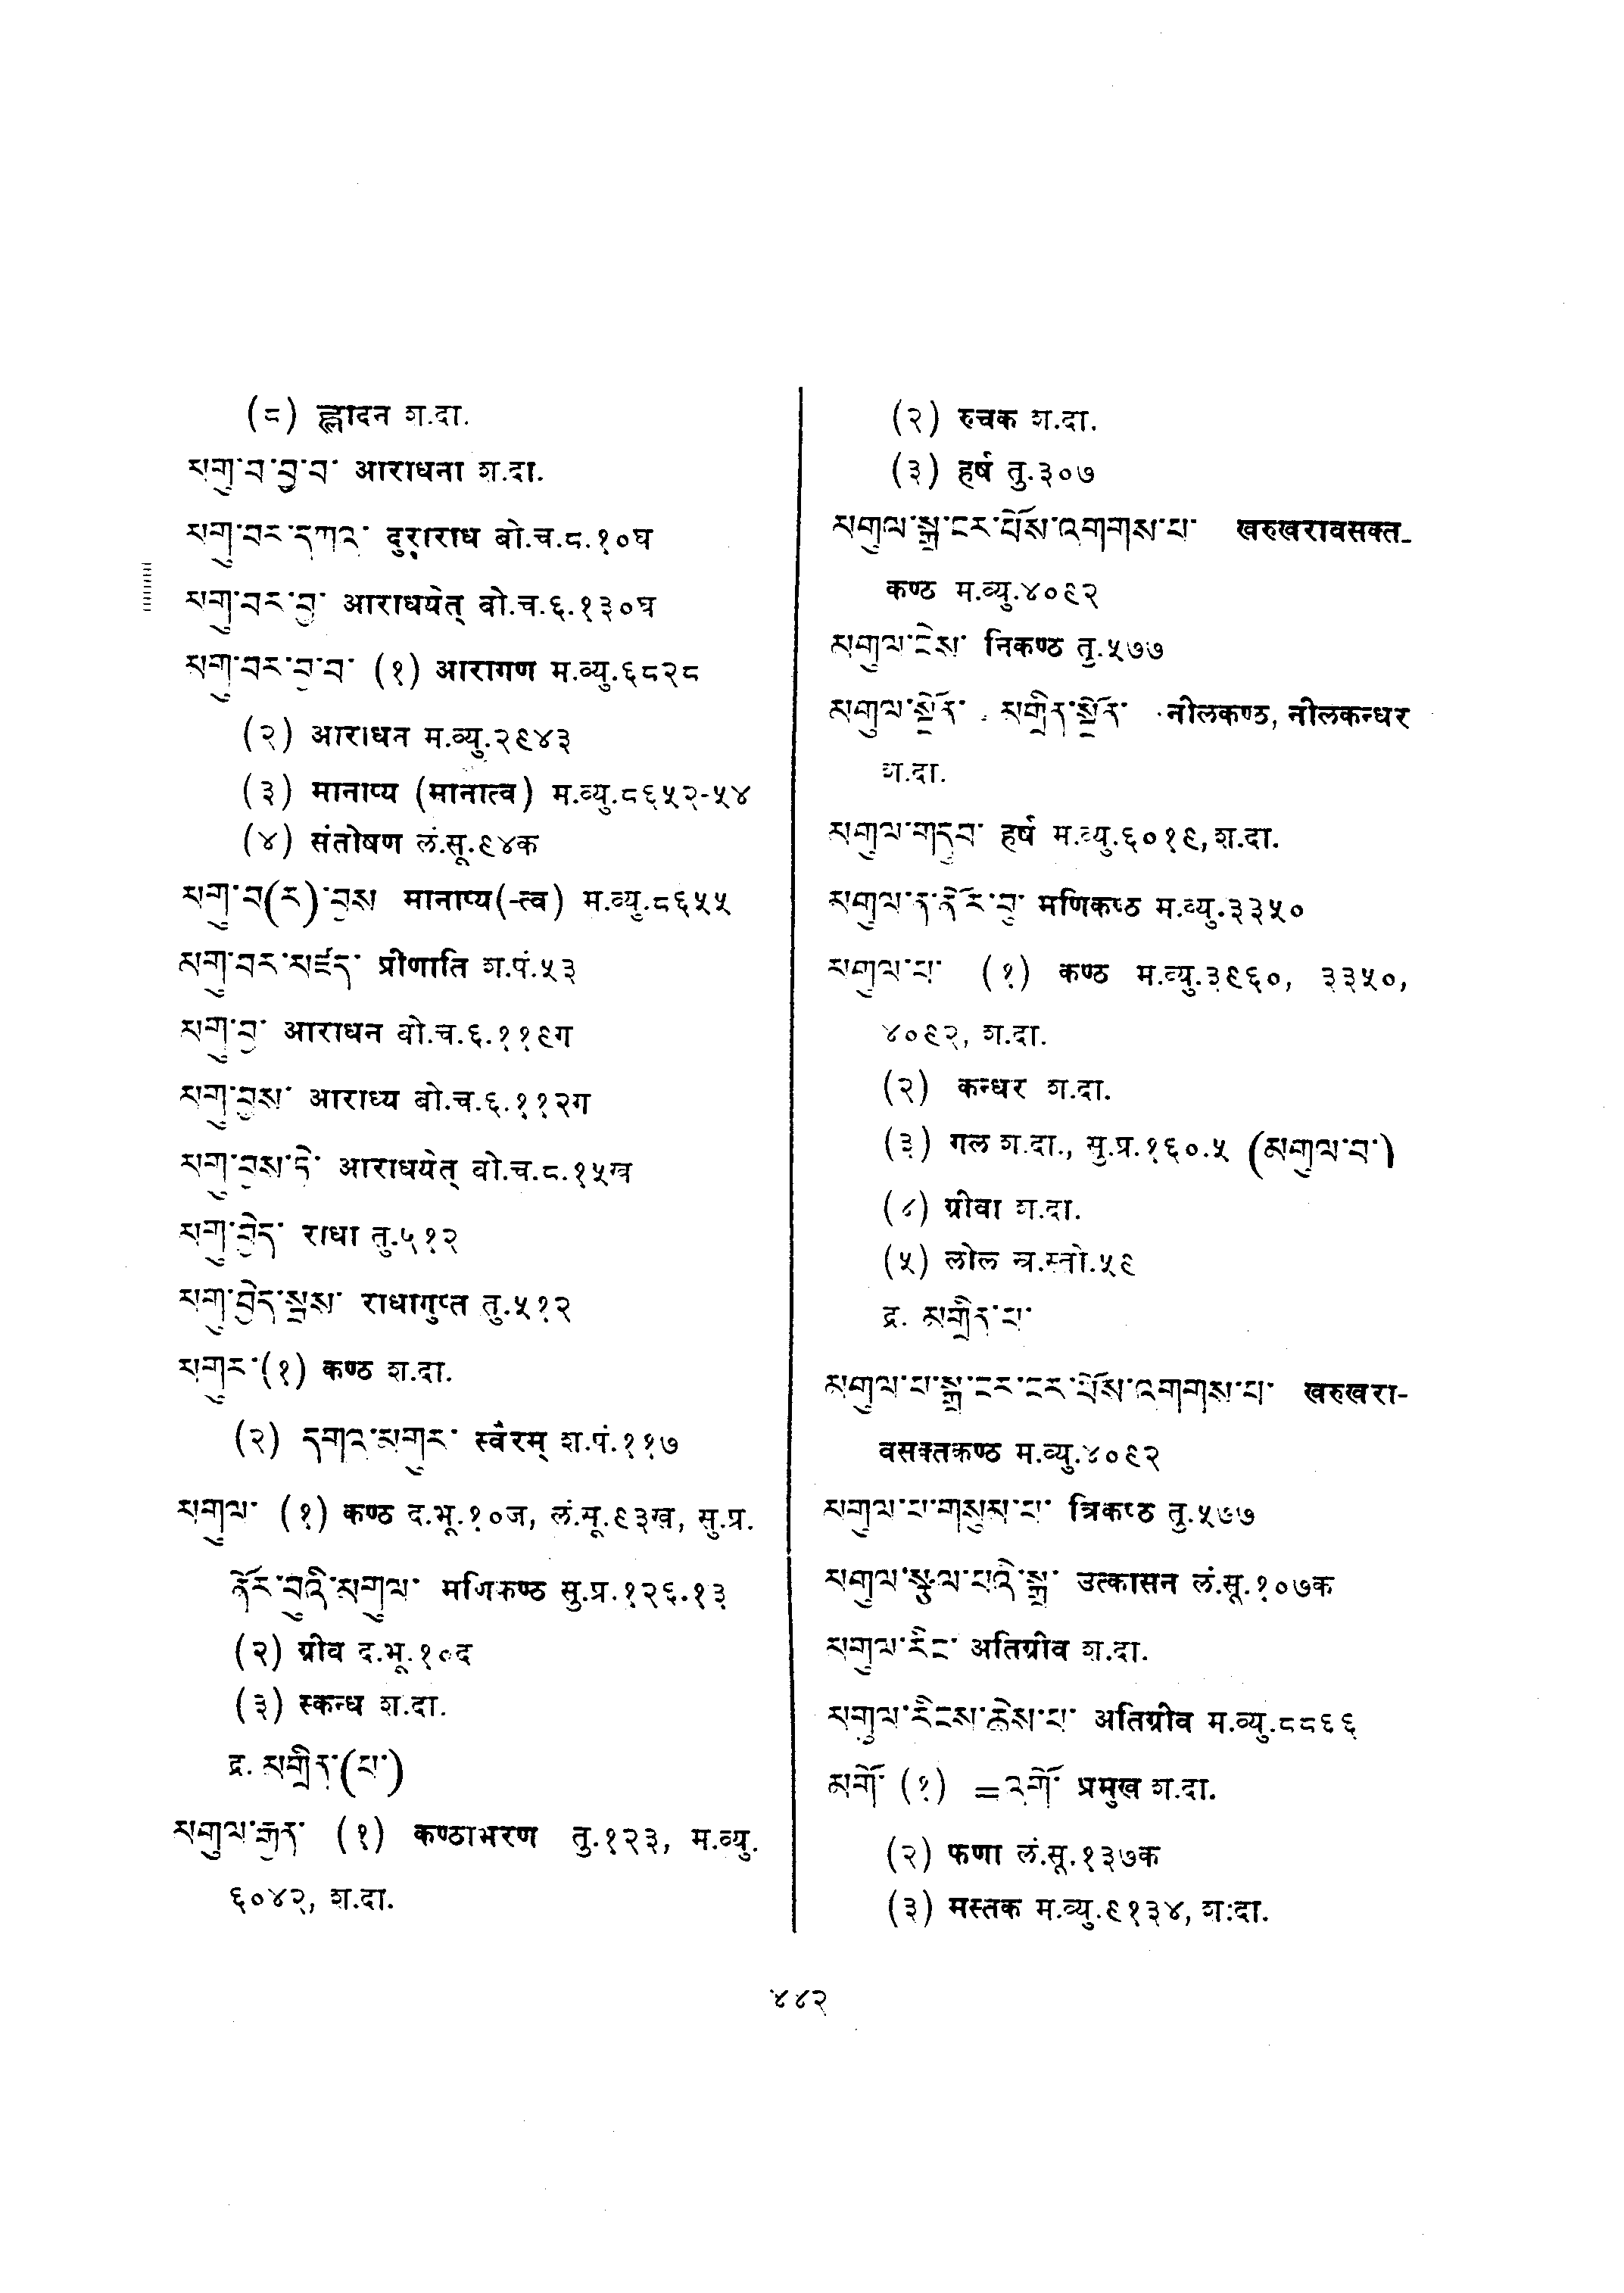 (८) ह्लादन श.दा.
མགུ་བ་བྱ་བ་ आराधना श.दा.
མགུ་བར་དཀའ་ दुराराध बो.च.८.१०घ
མགུ་བར་བྱ་ आराधयेत् बो.च.६.१३०घ
མགུ་བར་བྱ་བ་ (१) आरागण म.व्यु.६८२८
(२) आराधन म.व्यु.२९४३
(३) मानाप्य (मानात्व) म.व्यु.८६५२-५४
(४) संतोषण लं.सू.९४क
མགུ་བ(ར)་བྱས मानाप्य(-त्व) म.व्यु.८६५५
མགུ་བར་མཛད་ प्रीणाति श.पं.५३
མགུ་བྱ་ आराधन बो.च.६.११९ग
མགུ་བྱས་ आराध्य बो.च.६.११२ग
མགུ་བྱས་ཏེ་ आराधयेत् बो.च.८.१५ख
མགུ་བྱེད་ राधा तु.५१२
མགུ་བྱེད་སྦས་ राधागुप्त तु.५१२
མགུར་(१) कण्ठ श.दा.
(२) དགའ་མགུར་ स्वैरम् श.पं.११७
མགུལ་ (१) कण्ठ द.भू.१०ज, लं.सू.९३ख, सु.प्र.
ནོར་བུའི་མགུལ་ मणिकण्ठ सु.प्र.१२६.१३
(२) ग्रीव द.भू.१०द
(३) स्कन्ध श.दा.
द्र. མགྲིན་(པ་)
མགུལ་རྒྱན་ (१) कण्ठाभरण तु.१२३, म.व्यु.
६०४२, श.दा.
(२) रुचक श.दा.
(३) हर्ष तु.३०७
མགུལ་སྒྲ་ངར་པོས་འགགས་པ་ खरुखरावसक्त-
कण्ठ म.व्यु.४०९२
མགུལ་ངེས་ निकण्ठ तु.५७७
མགུལ་སྔོན་ མགྲིན་སྔོན་ नीलकण्ठ, नीलकन्धर
श.दा.
མགུལ་གདུབ་ हर्ष म.व्यु.६०१९, श.दा.
མགུལ་ན་ནོར་བུ་ मणिकण्ठ म.व्यु.३३५०
མགུལ་པ་ (१) कण्ठ म.व्यु.३९६०, ३३५०,
४०९२, श.दा.
(२) कन्धर श.दा.
(३) गल श.दा., सु.प्र.१६०.५ (མགུལ་བ་)
(४) ग्रीवा श.दा.
(५) लोल त्र.स्तो.५९
द्र. མགྲིན་པ་
མགུལ་པ་སྒྲ་ངར་ངར་པོས་འགགས་པ་ खरुखरा-
वसक्तकण्ठ म.व्यु.४०९२
མགུལ་པ་གསུམ་པ་ त्रिकण्ठ तु.५७७
མགུལ་སྟུལ་པའི་སྒྲ་ उत्कासन लं.सू.१०७क
མགུལ་རིང་ अतिग्रीव श.दा.
མགུལ་རིངས་ཆེས་པ་ अतिग्रीव म.व्यु.८८६६
མགོ་ (१) =འགོ་ प्रमुख श.दा.
(२) फणा लं.सू.१३७क
(३) मस्तक म.व्यु.९१३४, श.दा.
४४२